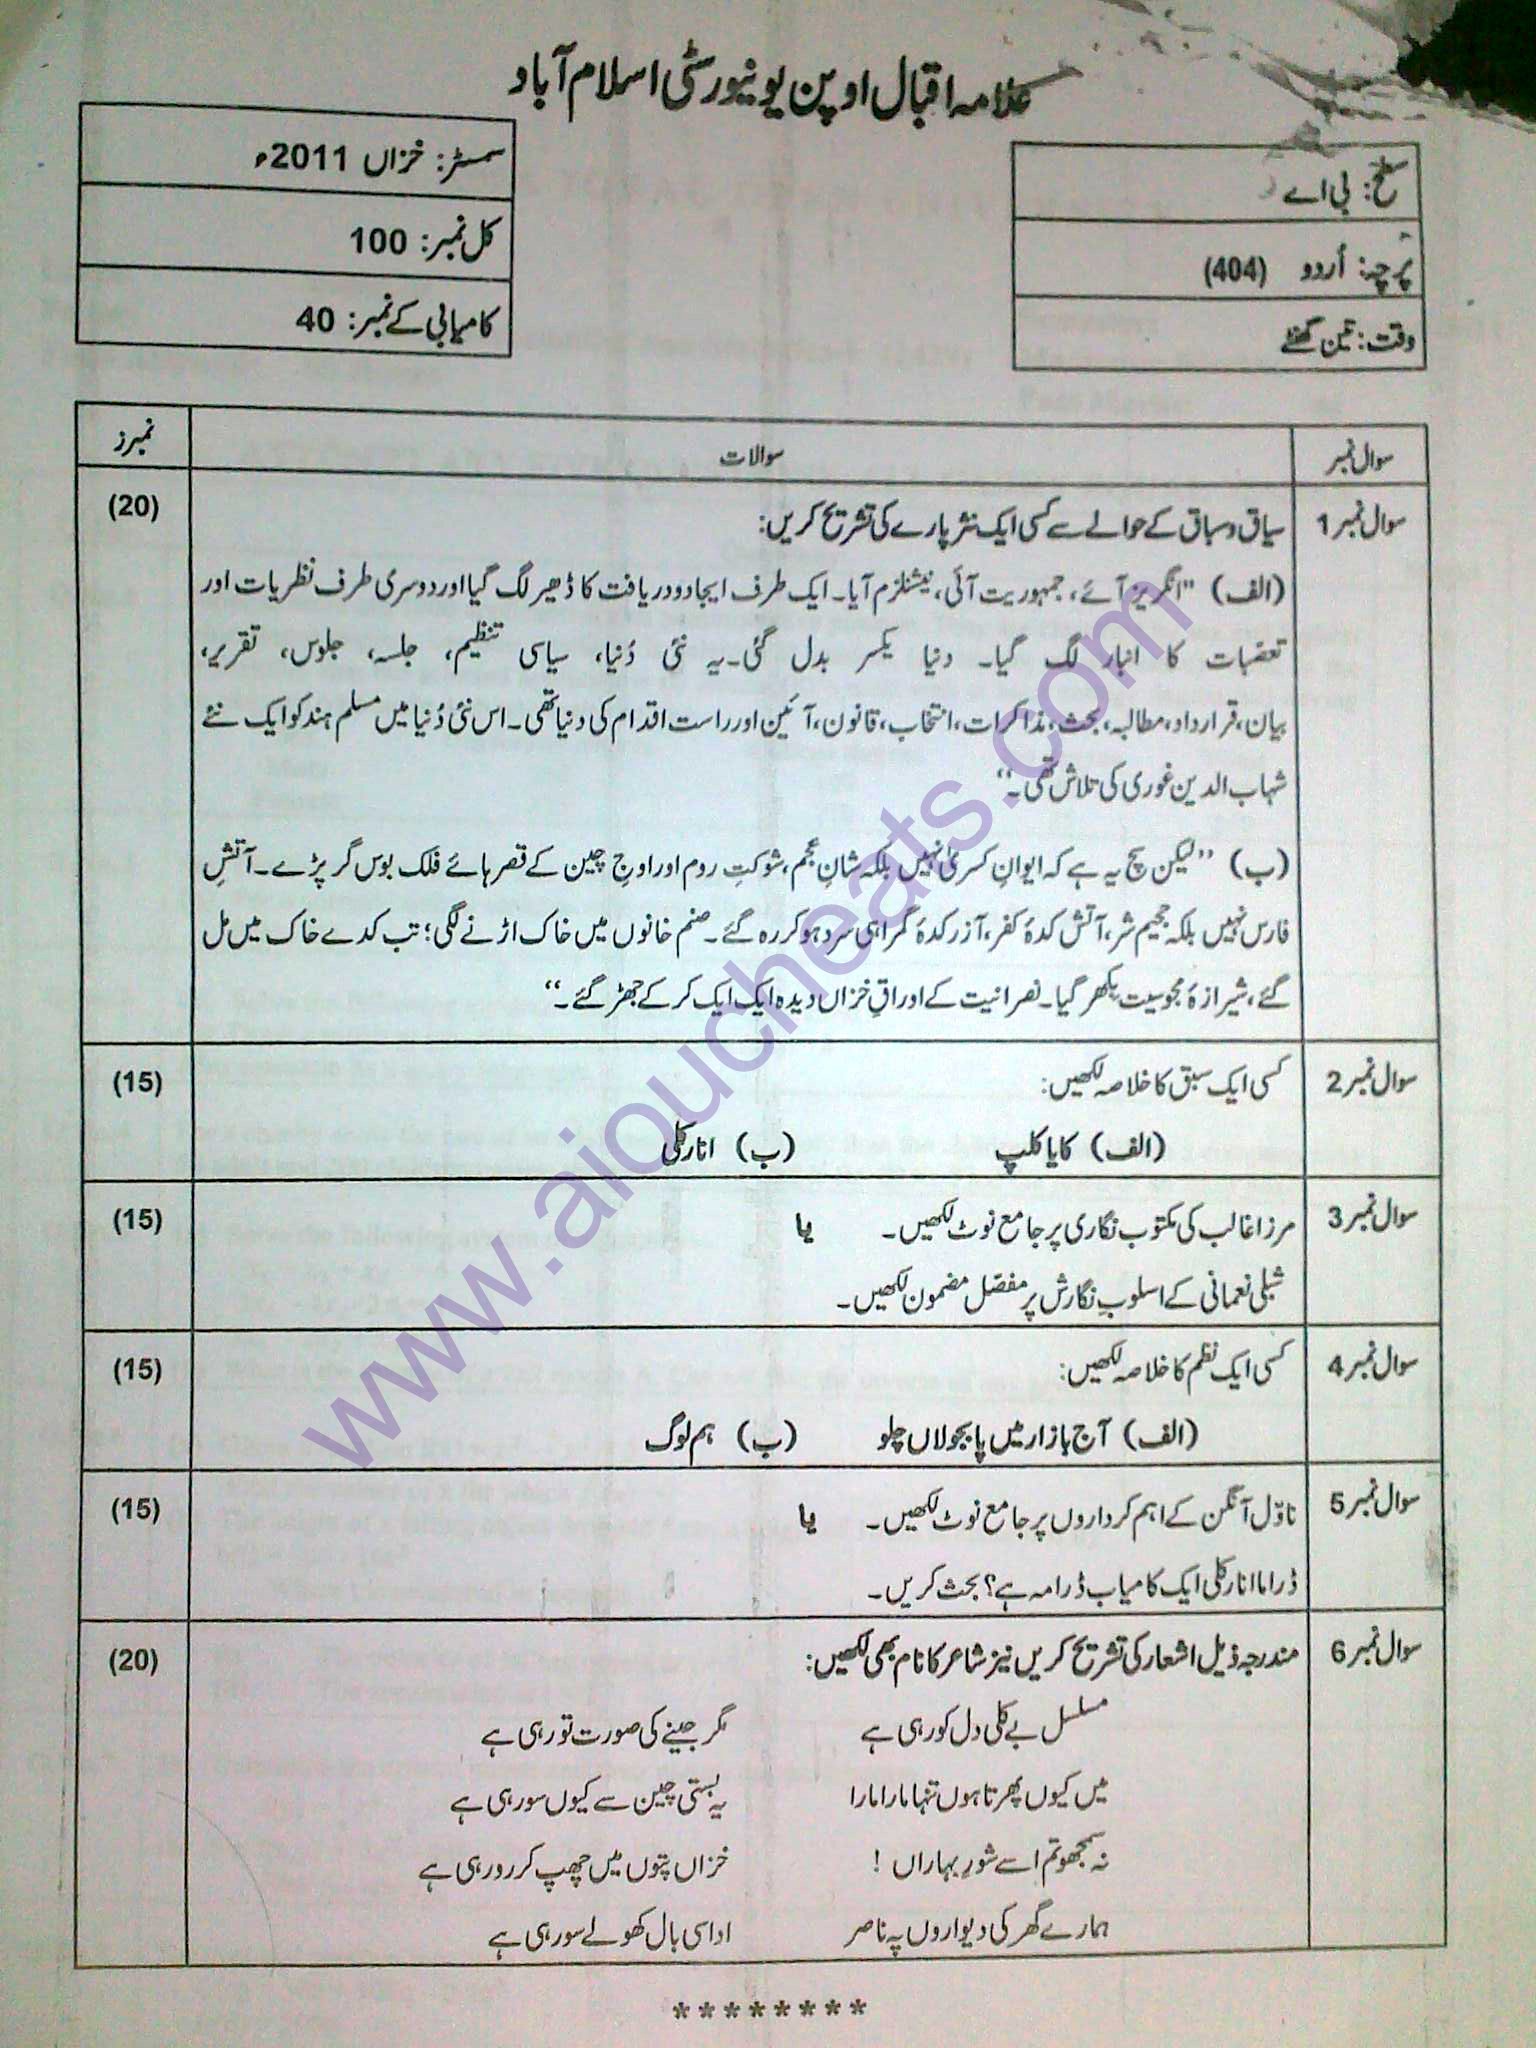 علامہ اقبال اوپن یونیورسٹی اسلام آباد
سطح: بی اے
پرچہ: اُردو (404)
وقت: تین گھنٹے
سمسٹر: خزاں 2011ء
کل نمبر: 100
کامیابی کے نمبر: 40
سوال نمبر سوالات نمبرز
سوال نمبر 1 سیاق و سباق کے حوالے سے کسی ایک نثر پارے کی تشریح کریں: (20)
(الف) "انگریز آئے، جمہوریت آئی، نیشنلزم آیا۔ ایک طرف ایجاد و دریافت کا ڈھیر لگ گیا اور دوسری طرف نظریات اور
تعصبات کا انبار لگ گیا۔ دنیا یکسر بدل گئی۔ یہ نئی دُنیا، سیاسی تنظیم، جلسہ، جلوس، تقریر،
بیان، قرارداد، مطالبہ، بحث، مذاکرات، انتخاب، قانون، آئین اور راست اقدام کی دنیا تھی۔ اس نئی دُنیا میں مسلم ہند کو ایک نئے
شہاب الدین غوری کی تلاش تھی۔"
(ب) "لیکن سچ یہ ہے کہ ایوانِ کسریٰ نہیں بلکہ شانِ عجم، شوکتِ روم اور اوجِ چین کے قصر ہائے فلک بوس گر پڑے۔ آتشِ
فارس نہیں بلکہ جحیم شر، آتش کدۂ کفر، آزر کدۂ گمراہی سرد ہو کر رہ گئے۔ صنم خانوں میں خاک اڑنے لگی؛ تب کدے خاک میں مل
گئے، شیرازۂ مجوسیت بکھر گیا۔ نصرانیت کے اوراقِ خزاں دیدہ ایک ایک کر کے جھڑ گئے۔"
سوال نمبر 2 کسی ایک سبق کا خلاصہ لکھیں: (15)
(الف) کایا کلپ (ب) انارکلی
سوال نمبر 3 مرزا غالب کی مکتوب نگاری پر جامع نوٹ لکھیں۔ یا (15)
شبلی نعمانی کے اسلوبِ نگارش پر مفصل مضمون لکھیں۔
سوال نمبر 4 کسی ایک نظم کا خلاصہ لکھیں: (15)
(الف) آج بازار میں پابجولاں چلو (ب) ہم لوگ
سوال نمبر 5 ناول آنگن کے اہم کرداروں پر جامع نوٹ لکھیں۔ یا (15)
ڈراما انارکلی ایک کامیاب ڈرامہ ہے؟ بحث کریں۔
سوال نمبر 6 مندرجہ ذیل اشعار کی تشریح کریں نیز شاعر کا نام بھی لکھیں: (20)
مسلسل بے کلی دل کو رہی ہے مگر جینے کی صورت تو رہی ہے
میں کیوں پھرتا ہوں تنہا مارا مارا یہ بستی چین سے کیوں سو رہی ہے
نہ سمجھو تم اسے شورِ بہاراں ! خزاں پتوں میں چھپ کر رو رہی ہے
ہمارے گھر کی دیواروں پہ ناصر اداسی بال کھولے سو رہی ہے
********
www.aioucheats.com